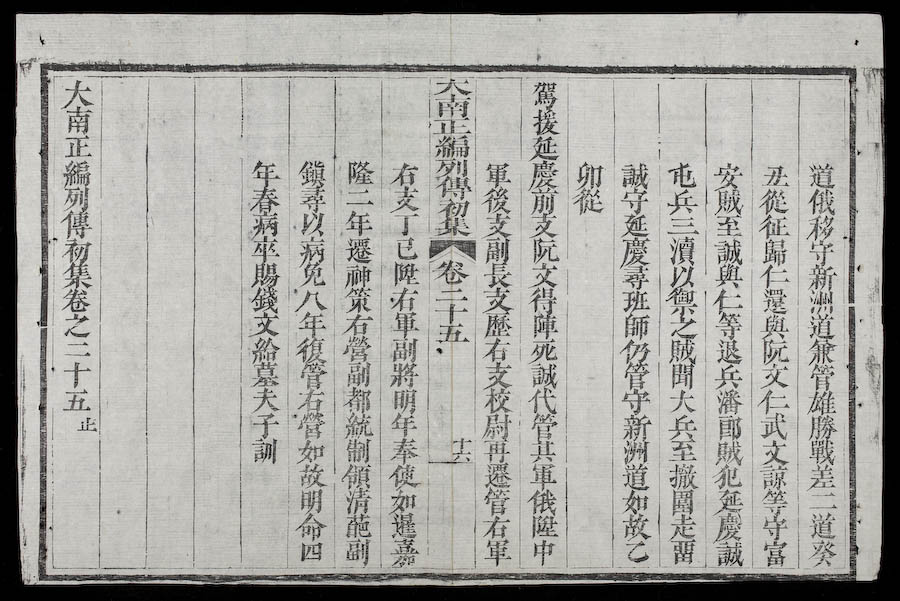 道俄移守新洲道兼管雄勝戰差二道癸
丑從征歸仁還與阮文仁武文諒等守富
安賊至誠與仁等退兵潘郎賊犯延慶誠
屯兵三瀆以禦之賊聞大兵至撤圍走畱
誠守延慶尋班師仍管守新洲道如故乙
卯從
駕援延慶前支阮文得陣死誠代管其軍俄陞中
軍後支副長支歷右支校尉再遷管右軍
大南正編列傳初集 卷二十五 十六
右支丁巳陞右軍副將明年奉使如暹嘉
隆二年遷神策右營副都統制領清葩副
鎮尋以病免八年復管右營如故明命四
年春病卒賜錢文給墓夫子訓
大南正編列傳初集卷之二十五 止